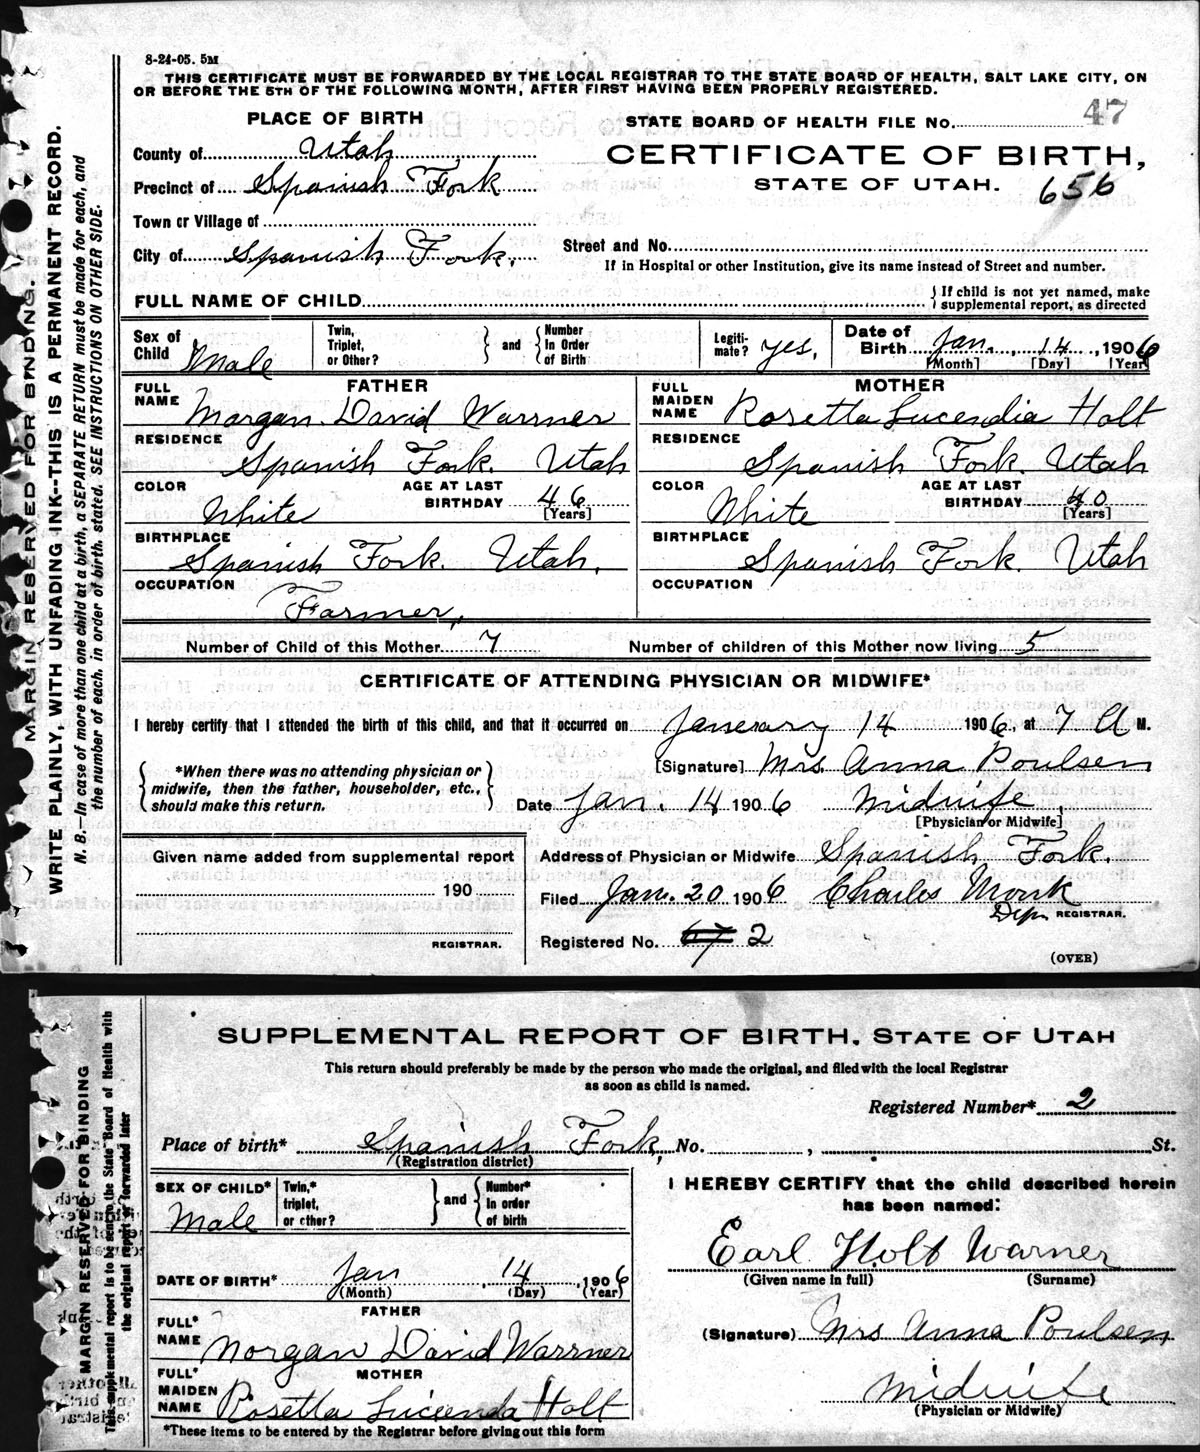 8-24-05. 5M
THIS CERTIFICATE MUST BE FORWARDED BY THE LOCAL REGISTRAR TO THE STATE BOARD OF HEALTH, SALT LAKE CITY, ON
OR BEFORE THE 5TH OF THE FOLLOWING MONTH, AFTER FIRST HAVING BEEN PROPERLY REGISTERED.
MARGIN RESERVED FOR BINDING.
WRITE PLAINLY, WITH UNFADING INK--THIS IS A PERMANENT RECORD.
N. B.—In case of more than one child at a birth, a SEPARATE RETURN must be made for each, and
the number of each, in order of birth, stated. SEE INSTRUCTIONS ON OTHER SIDE.
PLACE OF BIRTH
STATE BOARD OF HEALTH FILE No. 47
County of Utah
CERTIFICATE OF BIRTH,
Precinct of Spanish Fork
STATE OF UTAH. 656
Town or Village of
City of Spanish Fork.
Street and No.
If in Hospital or other Institution, give its name instead of Street and number.
FULL NAME OF CHILD
{If child is not yet named, make
supplemental report, as directed
Sex of Child Male
Twin, Triplet, or Other? } and { Number In Order of Birth
Legiti- mate? yes,
Date of Birth Jan., 14, 1906
[Month] [Day] [Year]
FATHER
FULL NAME Morgan David Warrner
RESIDENCE
Spanish Fork. Utah
COLOR White
AGE AT LAST BIRTHDAY 46
[Years]
BIRTHPLACE
Spanish Fork. Utah.
OCCUPATION
Farmer,
MOTHER
FULL MAIDEN NAME Rosetta Lucendia Holt
RESIDENCE
Spanish Fork. Utah
COLOR White
AGE AT LAST BIRTHDAY 40
[Years]
BIRTHPLACE
Spanish Fork. Utah
OCCUPATION
Number of Child of this Mother 7
Number of children of this Mother now living 5
CERTIFICATE OF ATTENDING PHYSICIAN OR MIDWIFE*
I hereby certify that I attended the birth of this child, and that it occurred on Janerary 14 1906, at 7 A M.
{*When there was no attending physician or
midwife, then the father, householder, etc.,
should make this return.}
[Signature] Mrs. Anna Poulsen
Date Jan. 14 1906 Midwife
[Physician or Midwife]
Given name added from supplemental report
190
REGISTRAR.
Address of Physician or Midwife Spanish Fork.
Filed Jan. 20 1906 Charles Monk
Dep. REGISTRAR.
Registered No. 67 2
(OVER)
SUPPLEMENTAL REPORT OF BIRTH, STATE OF UTAH
This return should preferably be made by the person who made the original, and filed with the local Registrar
as soon as child is named.
MARGIN RESERVED FOR BINDING
This supplemental report is to be sent to the State Board of Health with
the original report or forwarded later
Registered Number* 2
Place of birth* Spanish Fork, No. , St.
(Registration district)
SEX OF CHILD* Male
Twin,* triplet, or other? } and { Number* In order of birth
DATE OF BIRTH* Jan, 14, 1906
(Month) (Day) (Year)
FATHER
FULL* NAME Morgan David Warrner
MOTHER
FULL* MAIDEN NAME Rosetta Lucienda Holt
*These items to be entered by the Registrar before giving out this form
I HEREBY CERTIFY that the child described herein
has been named:
Earl Holt Warner
(Given name in full) (Surname)
(Signature) Mrs Anna Poulsen
Midwife
(Physician or Midwife)